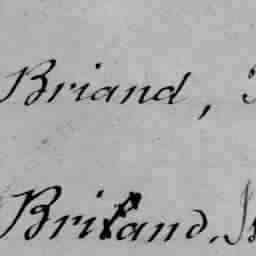 Briand,
Briland,